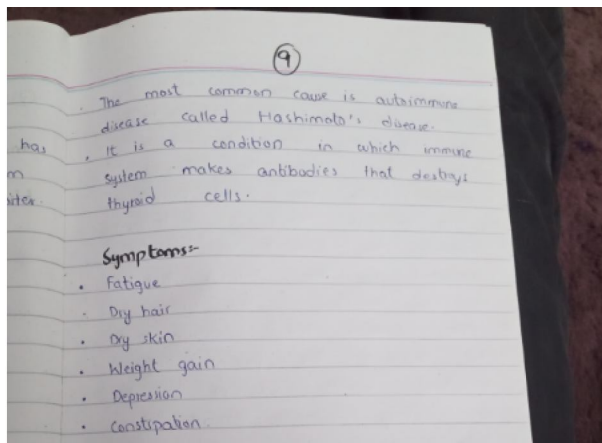 9
. The most common cause is autoimmune
disease called Hashimoto's disease.
. It is a condition in which immune
system makes antibodies that destroys
thyroid cells.
has
m
Symptoms:-
• Fatigue
• Dry hair
• Dry skin
• Weight gain
• Depression
• Constipation.